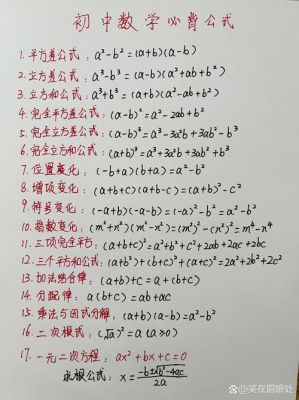 初中数学必背公式
1. 平方差公式: a²-b²=(a+b)(a-b)
2. 立方差公式: a³-b³=(a-b)(a²+ab+b²)
3. 立方和公式: a³+b³=(a+b)(a²-ab+b²)
4. 完全平方差公式: (a-b)²=a²-2ab+b²
5. 完全立方差公式: (a-b)³=a³-3a²b+3ab²-b³
6. 完全立方和公式: (a+b)³=a³+3a²b+3ab²+b³
7. 位置变化: (-b+a)(b+a)=a²-b²
8. 增项变化: (a+b+c)(a+b-c)=(a+b)²-c²
9. 符号变化: (-a+b)(-a-b)=(-a)²-b²=a²-b²
10. 指数变化: (m²+n²)(m²-n²)=(m²)²-(n²)²=m⁴-n⁴
11. 三项完全平方: (a+b+c)²=a²+b²+c²+2ab+2ac+2bc
12. 三个平方和: (a+b)²+(b+c)²+(a+c)²=2a²+2b²+2c²
13. 加法结合律: (a+b)+c=a+(b+c)
14. 分配律: a(b+c)=ab+ac
15. 乘法与因式分解, (a+b)(a-b)=a²-b²
16. 二次根式: (√a)²=a(a≥0)
17. 一元二次方程: ax²+bx+c=0
求根公式: x=(-b±√b²-4ac)/2a
头条 @笑在眉眼处